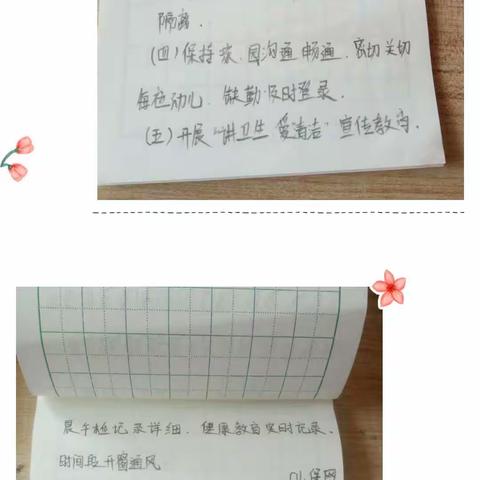 隔离.
(四)保持家、园沟通畅通.密切关切
每位幼儿.缺勤及时登录.
(五)开展“讲卫生 爱清洁”宣传教育.
晨午检记录详细.健康教育实时记录.
时间段开窗通风